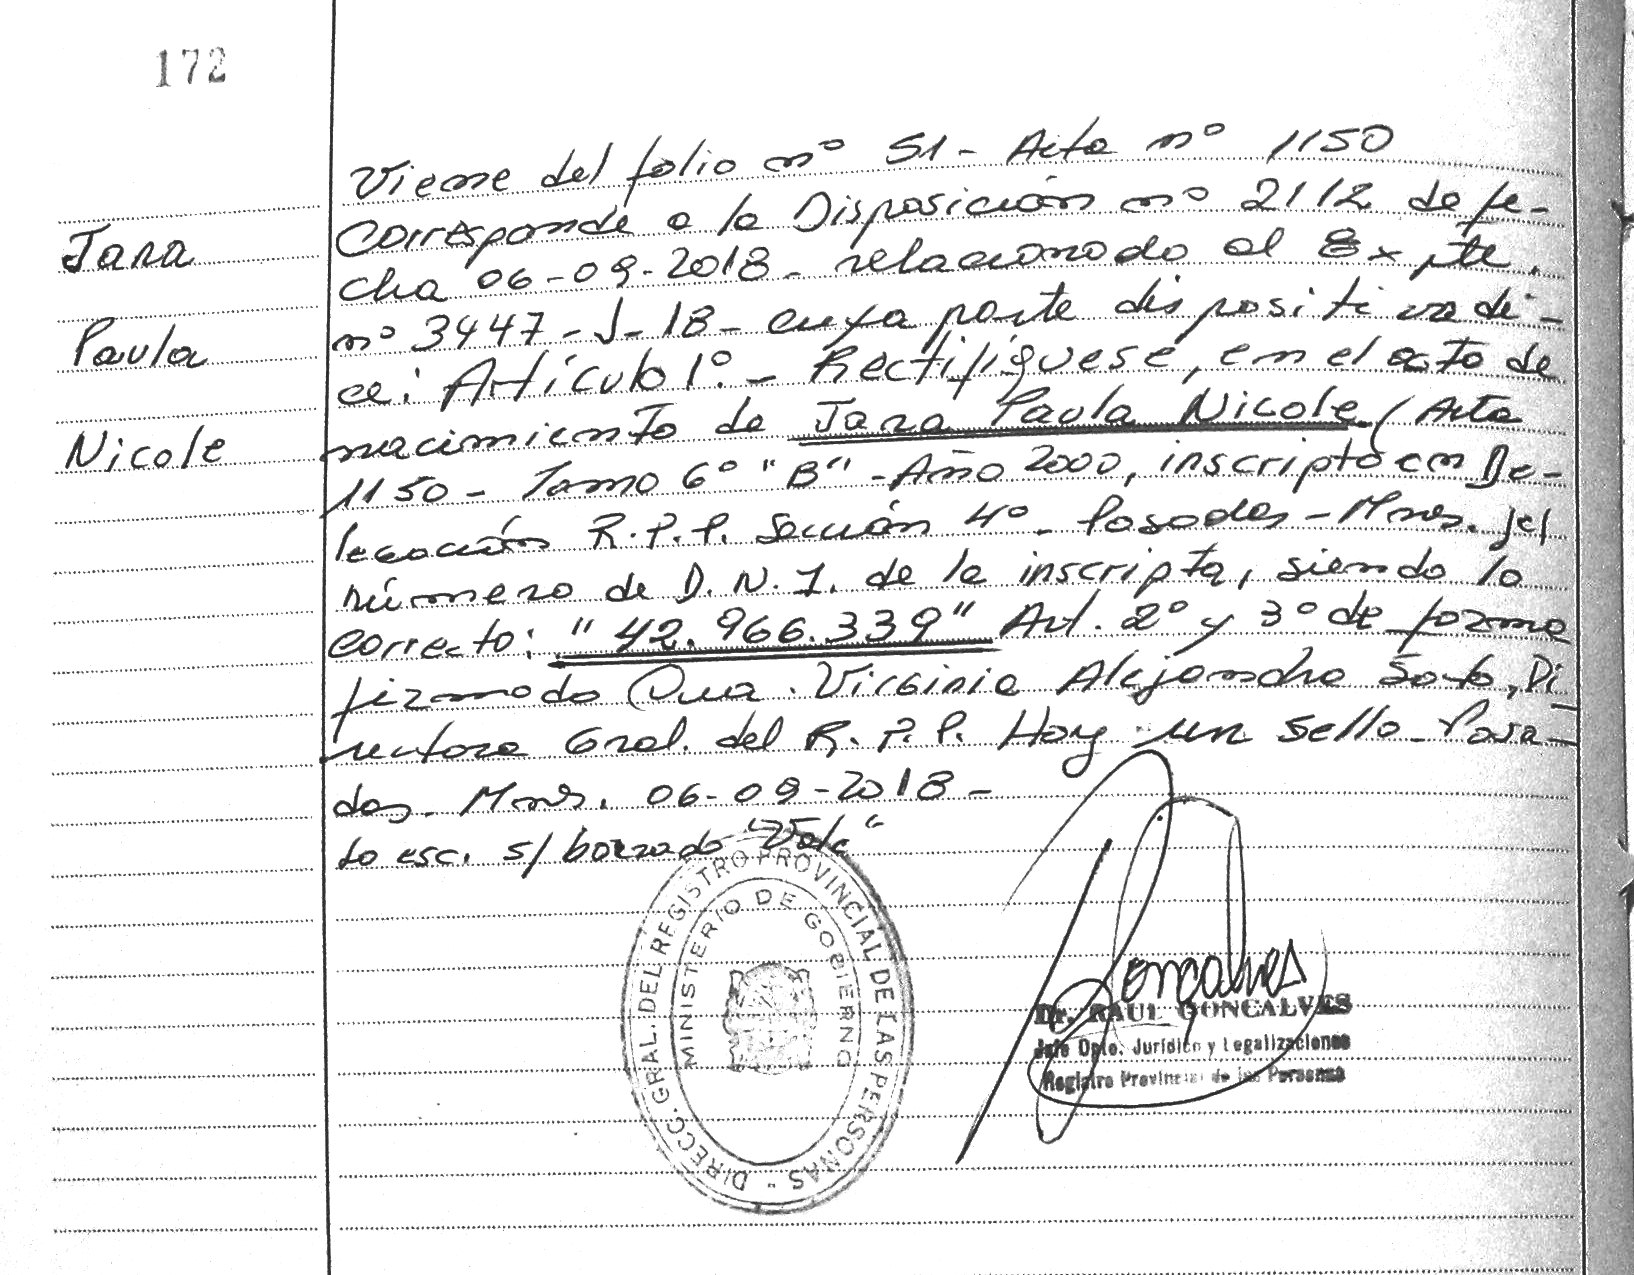 172
Jara
Paula
Nicole
Viene del folio nº 51 - Acta nº 1150
Corresponde a la Disposición nº 2112 de fe-
cha 06-09-2018 - relacionado al Expte.
nº 3447-J-18 - cuya parte dispositiva di-
ce: Artículo 1º. - Rectifíquese, en el acta de
nacimiento de Jara Paula Nicole (Acta
1150 - Tomo 6º "B" - Año 2000, inscripta en De-
legación R.P.P. Sección 4º - Posadas - Mnes. )el
número de D.N.I. de la inscripta, siendo lo
correcto: "42.966.339" Art. 2º y 3º de forma
firmado Virginia Alejandra Soto, Di
rectora Gral. del R.P.P. Hay un sello - Posa-
das - Mnes. 06-09-2018 -
Lo esc. s/ borrado "Vale"
DIRECC. GRAL. DEL REGISTRO PROVINCIAL DE LAS PERSONAS -
MINISTERIO DE GOBIERNO
Goncalves
Dr. RAUL GONCALVES
Jefe Dpto. Jurídico y Legalizaciones
Registro Provincial de las Personas